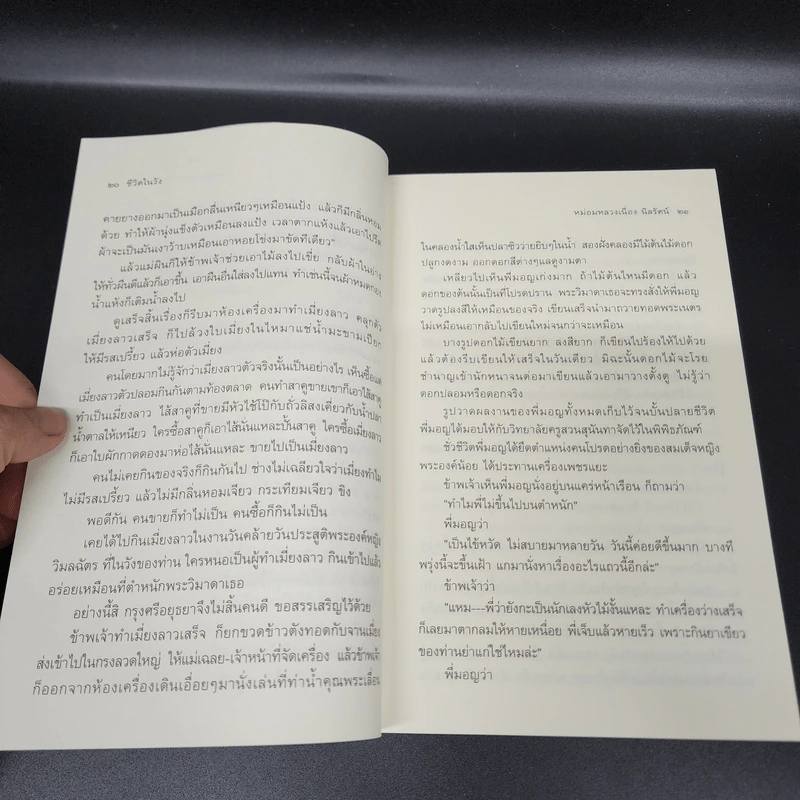 ๒๐ ชีวิตในวัง
คายยางออกมาเป็นเมือกลื่นเหนียวๆเหมือนแป้ง แล้วก็มีกลิ่นหอม
ด้วย ทำให้ผ้านุ่งแข็งตัวเหมือนลงแป้ง เวลาตากแห้งแล้วเอาไปรีด
ผ้าจะเป็นมันเงาว้าบเหมือนเอาหอยโข่งมาขัดทีเดียว"
แล้วแม่ผินก็ให้ข้าพเจ้าช่วยเอาไม้ลงไปเขี่ย กลับผ้าในอ่าง
ให้ทั่วผืนดีแล้วก็เอาขึ้น เอาผืนอื่นใส่ลงไปแทน ทำเช่นนี้จนผ้าหมดกอง
น้ำแห้งก็เติมน้ำลงไป
ดูเสร็จสิ้นเรื่องก็รีบมาห้องเครื่องมาทำเมี่ยงลาว คลุกตัว
เมี่ยงลาวเสร็จ ก็ไปล้วงใบเมี่ยงในไหมาแช่น้ำมะขามเปียก
ให้มีรสเปรี้ยว แล้วห่อตัวเมี่ยง
คนโดยมากไม่รู้จักว่าเมี่ยงลาวตัวจริงนั้นเป็นอย่างไร เห็นซื้อแต่
เมี่ยงลาวตัวปลอมกินกันตามท้องตลาด คนทำสาคูขายเขาก็เอาไส้สาคู
ทำเป็นเมี่ยงลาว ไส้สาคูที่ขายมีหัวไช้โป๊กับถั่วลิสงเคี่ยวกับน้ำปลา
น้ำตาลให้เหนียว ใครซื้อสาคูก็เอาไส้นั่นแหละปั้นสาคู ใครซื้อเมี่ยงลาว
ก็เอาใบผักกาดดองมาห่อไส้นั่นแหละ ขายไปเป็นเมี่ยงลาว
คนไม่เคยกินของจริงก็กินกันไป ช่างไม่เฉลียวใจว่าเมี่ยงทำไม
ไม่มีรสเปรี้ยว แล้วไม่มีกลิ่นหอมเจียว กระเทียมเจียว ขิง
พอดีกัน คนขายก็ทำไม่เป็น คนซื้อก็กินไม่เป็น
เคยได้ไปกินเมี่ยงลาวในงานวันคล้ายวันประสูติพระองค์หญิง
วิมลฉัตร ที่ในวังของท่าน ใครหนอเป็นผู้ทำเมี่ยงลาว กินเข้าไปแล้ว
อร่อยเหมือนที่ตำหนักพระวิมาดาเธอ
อย่างนี้สิ กรุงศรีอยุธยาจึงไม่สิ้นคนดี ขอสรรเสริญไว้ด้วย
ข้าพเจ้าทำเมี่ยงลาวเสร็จ ก็ยกขวดข้าวตังทอดกับจานเมี่ยง
ส่งเข้าไปในกรงลวดใหญ่ ให้แม่เฉลย-เจ้าหน้าที่จัดเครื่อง แล้วข้าพเจ้า
ก็ออกจากห้องเครื่องเดินเอื่อยๆมานั่งเล่นที่ท่าน้ำคุณพระเลื่อน
หม่อมหลวงเนื่อง นิลรัตน์ ๒๑
ในคลองน้ำใสเห็นปลาซิวว่ายยิบๆในน้ำ สองฝั่งคลองมีไม้ต้นไม้ดอก
ปลูกงดงาม ออกดอกสีต่างๆแลดูงามตา
เหลียวไปเห็นพี่มอญเก่งมาก ถ้าไม้ต้นไหนมีดอก แล้ว
ดอกของต้นนั้นเป็นที่โปรดปราน พระวิมาดาเธอจะทรงสั่งให้พี่มอญ
วาดรูปลงสีให้เหมือนของจริง เขียนเสร็จนำมาถวายทอดพระเนตร
ไม่เหมือนเอากลับไปเขียนใหม่จนกว่าจะเหมือน
บางรูปดอกไม้เขียนยาก ลงสียาก ก็เขียนไปร้องไห้ไปด้วย
แล้วต้องรีบเขียนให้เสร็จในวันเดียว มิฉะนั้นดอกไม้จะโรย
ชำนาญเข้านักหนาจนต่อมาเขียนแล้วเอามาวางตั้งดู ไม่รู้ว่า
ดอกปลอมหรือดอกจริง
รูปวาดผลงานของพี่มอญทั้งหมดเก็บไว้จนบั้นปลายชีวิต
พี่มอญได้มอบให้กับวิทยาลัยครูสวนสุนันทาจัดไว้ในพิพิธภัณฑ์
ชั่วชีวิตพี่มอญได้ยึดตำแหน่งคนโปรดอย่างยิ่งของสมเด็จหญิง
พระองค์น้อย ได้ประทานเครื่องเพชรแยะ
ข้าพเจ้าเห็นพี่มอญนั่งอยู่บนแคร่หน้าเรือน ก็ถามว่า
"ทำไมพี่ไม่ขึ้นไปบนตำหนัก"
พี่มอญว่า
"เป็นไข้หวัด ไม่สบายมาหลายวัน วันนี้ค่อยดีขึ้นมาก บางที
พรุ่งนี้จะขึ้นเฝ้า แกมานั่งหาเรื่องอะไรแถวนี้อีกล่ะ"
ข้าพเจ้าว่า
"แหม---พี่ว่ายังกะเป็นนักเลงหัวไม้งั้นแหละ ทำเครื่องว่างเสร็จ
ก็เลยมาตากลมให้หายเหนื่อย พี่เจ็บแล้วหายเร็ว เพราะกินยาเขียว
ของท่านย่าแกใช่ไหมล่ะ"
พี่มอญว่า